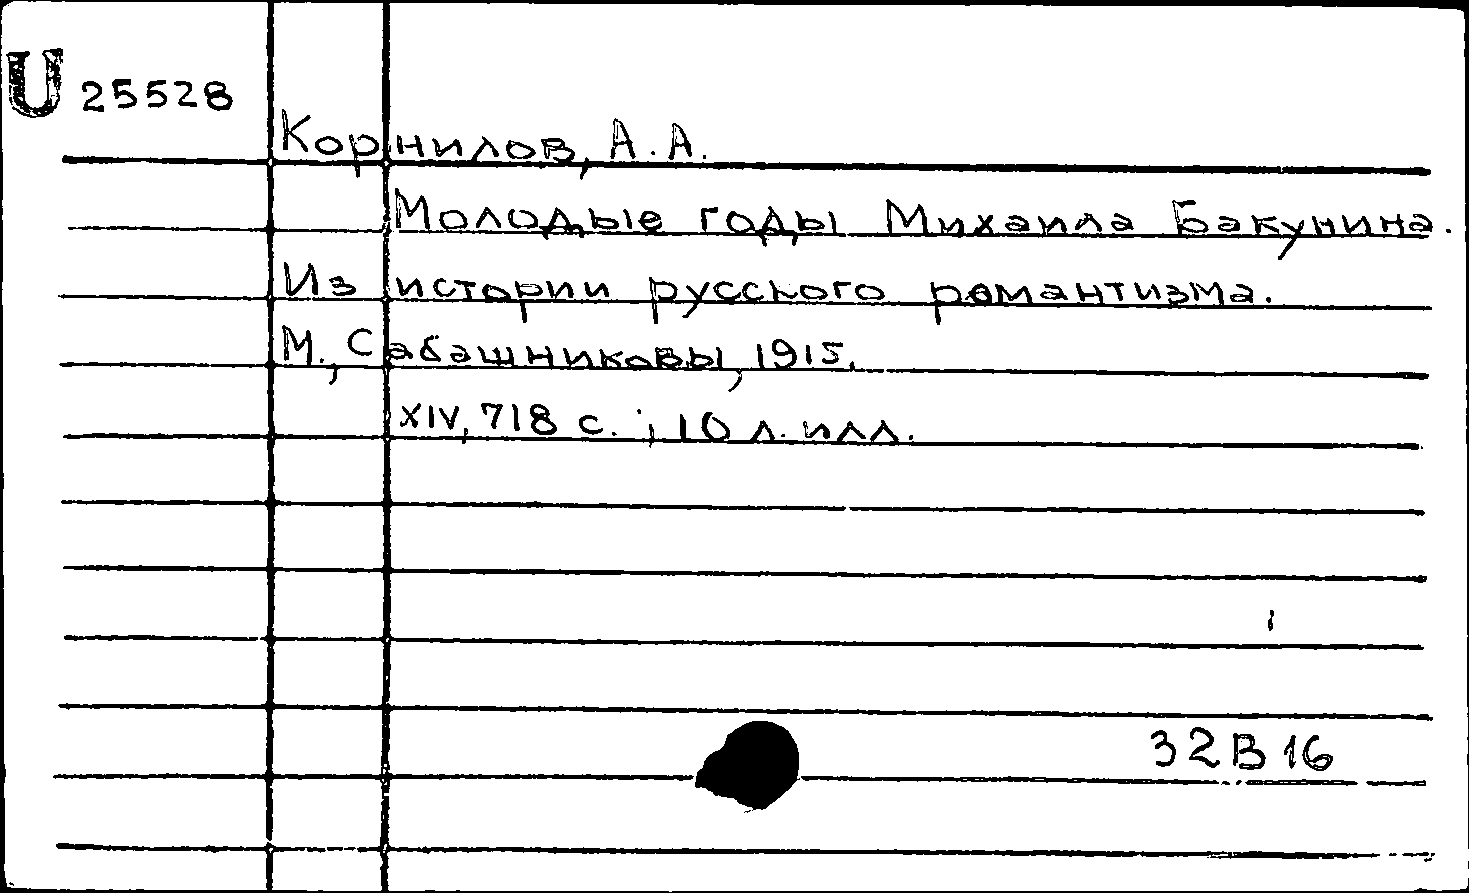 U 25528
Корнилов, А. А.
Молодые годы Михаила Бакунина.
Из истории русского романтизма.
М., Сабашниковы, 1915.
XIV, 718 с. ; 10 л. илл.
32В16